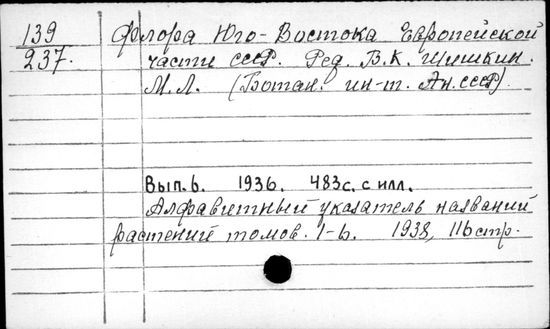 139 Флора Юго-Востока Европейской
237. части СССР. Ред. В.К. Шишкин.
М.Л. (Ботан. ин-т. Ан.СССР).
Вып.6. 1936. 483с. с илл.
Алфавитный указатель названий
растений томов. 1-6. 1938, 116стр.